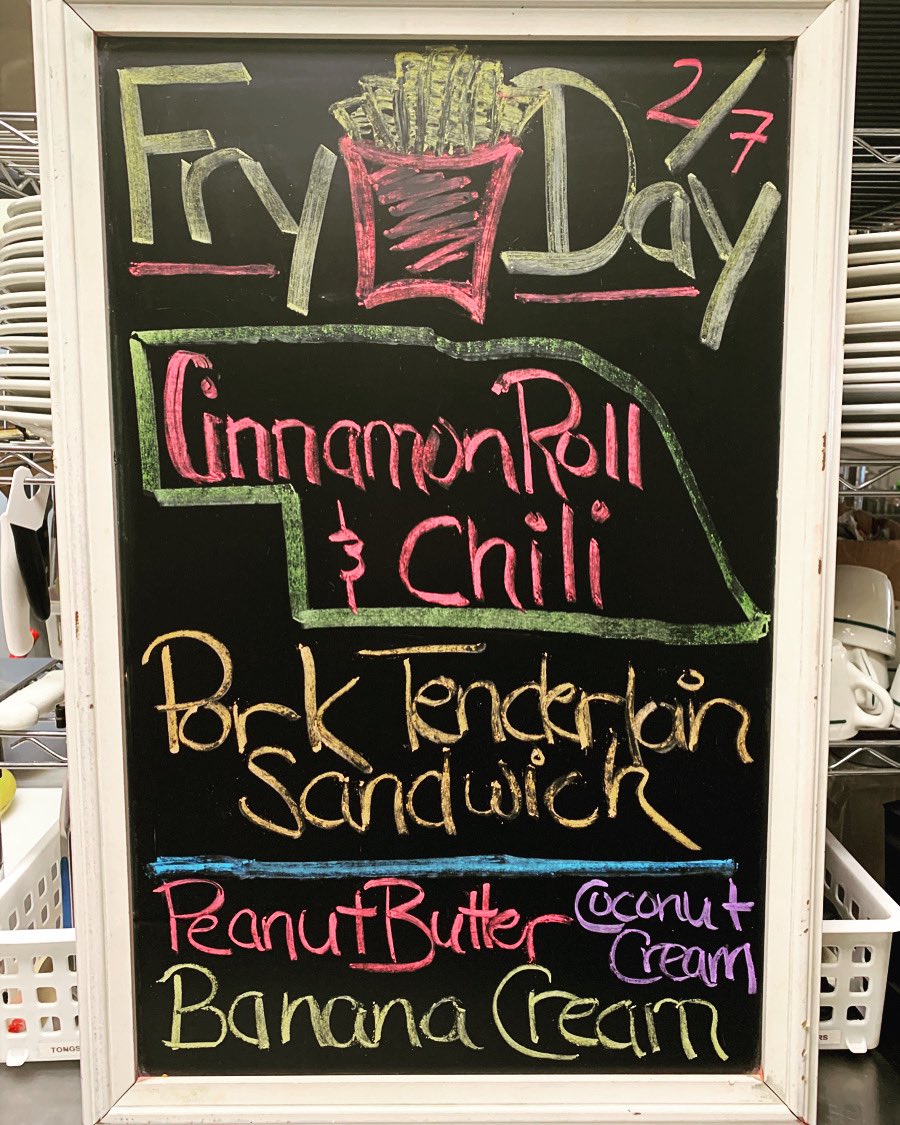 Fry Day 2/7
Cinnamon Roll
& Chili
Pork Tenderloin
Sandwich
Peanut Butter
Coconut
Cream
Banana Cream
TONGS